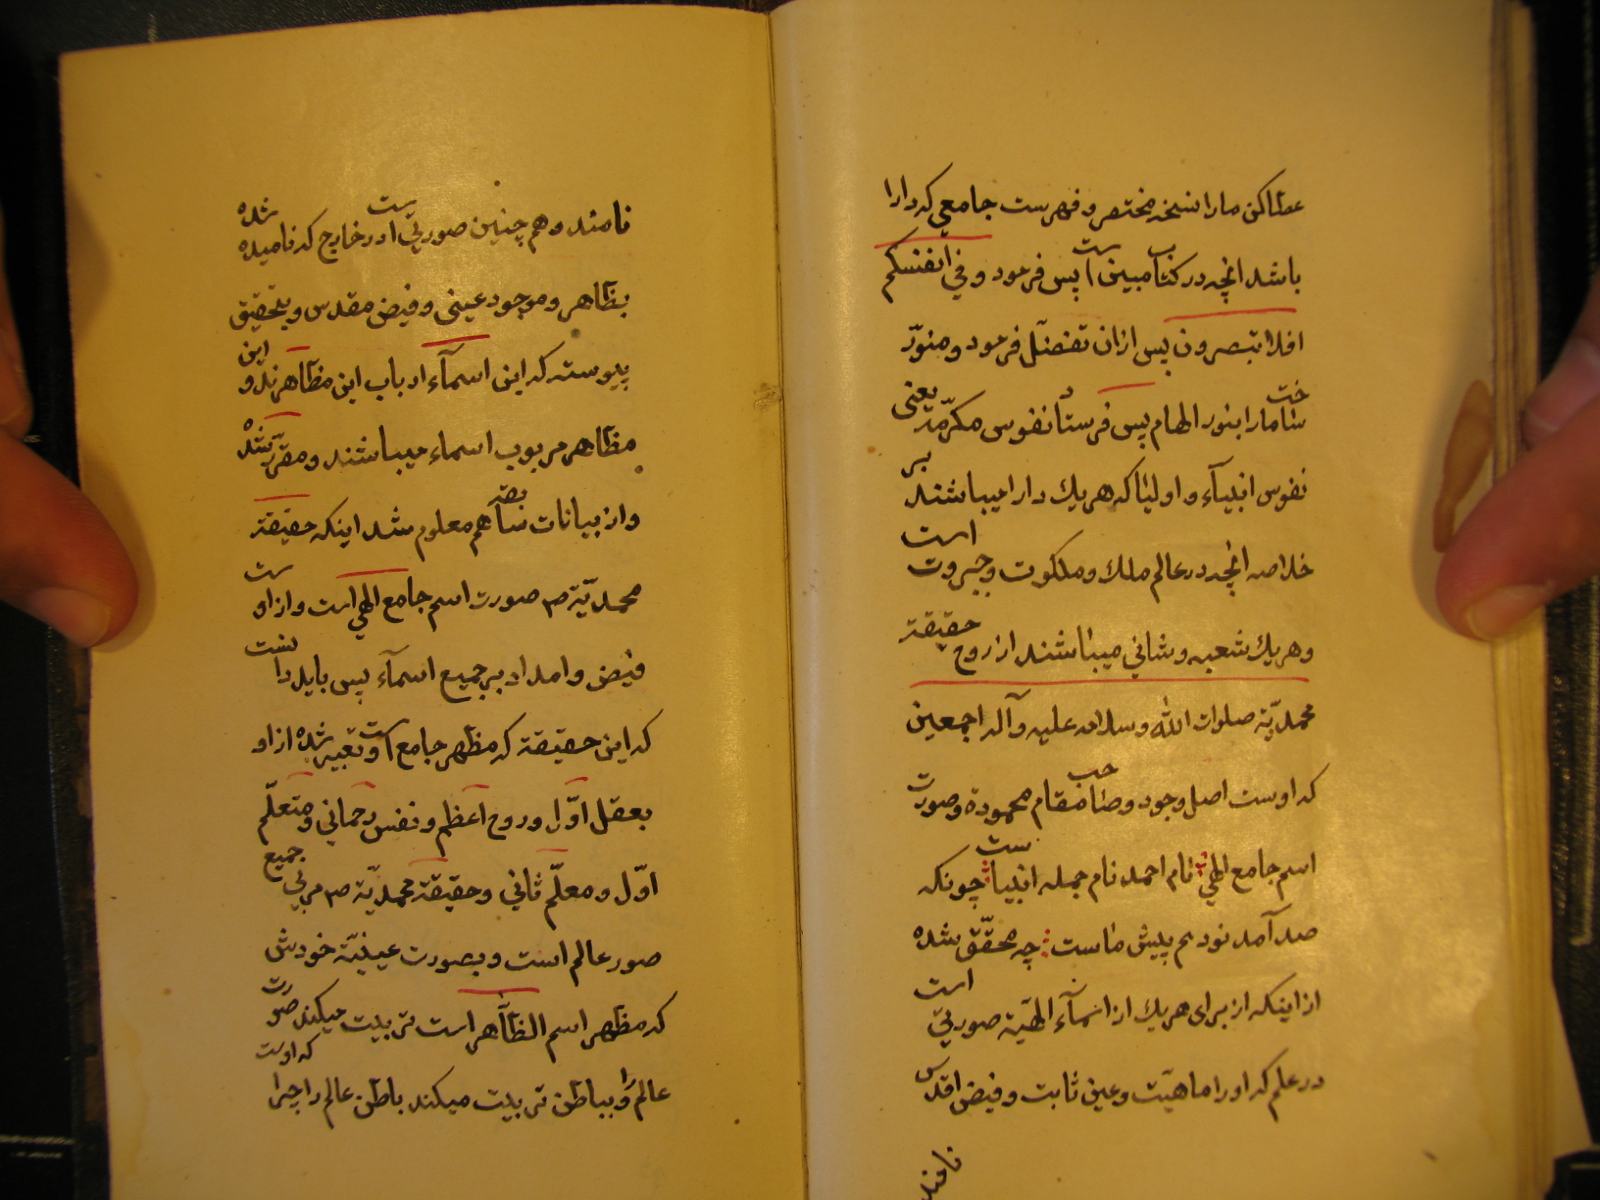 عطا کن ما را نسخه مختصر و فهرست جامعی که دارا
باشد انچه در کتاب مبین است پس فرمود و في انفسکم
افلا تبصرون پس ازان تفضّل فرمود و منوّر
ساخت ما را بنور الهام پس فرستاد نفوس مکرّمه یعنی
نفوس انبیآء و اولیا که هر یك دارا میباشند بر
خلاصه انچه در عالم ملك و ملکوت و جبروت است
و هر یك شعبه و شانی میباشند از روح حقیقة
محمدیّة صلوات الله و سلامه علیه و آله اجمعین
که اوست اصل وجود و صاحب مقام محمودة و صورت
اسم جامع الهي نام احمد نام جمله انبیاست چونکه
صد آمد نود هم پیش ماست چه محقّق شده
از اینکه از برای هر یك از اسمآء الهیّة صورتی است
در علم که او را ماهیّت و عین ثابت و فیض اقدس
نامند
نامند و هم چنین صورتی است در خارج که نامیده شده
بظاهر و موجود عینی و فیض مقدس و بتحقیق
پیوسته که این اسمآء ارباب این مظاهرند و این
مظاهر مربوب اسماء میباشند و مقرّر شده
و از بیانات سابقه هم معلوم شد اینکه حقیقة
محمدیّة ص صورت اسم جامع الهي است و از اوست
فیض و امداد بر جمیع اسمآء پس باید دانست
که این حقیقة که مظهر جامع است و تعبیر شده از او
بعقل اوّل و روح اعظم و نفس رحماني و متعلّم
اوّل و معلّم ثاني و حقیقة محمدیّة ص مربّي جمیع
صور عالم است و بصورت عینیّة خودش
که مظهر اسم الظاهر است تربیت میکند صورت
عالم را و بباطن تربیت میکند باطن عالم را چرا که اوست